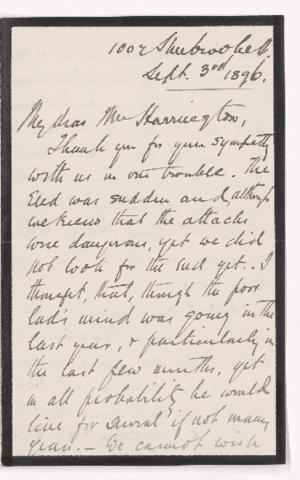 100 E Sherbrooke St.
Sept. 3rd 1896.
My dear Mr Harrington,
Thank you for your sympathy
with us in our trouble. The
End was sudden and although
we knew that the attacks
were dangerous, yet we did
not look for the end yet. - I
thought, that, though the poor
lad's mind was going in the
last year, & particularly in
the last few months, yet
in all probability he would
live for several if not many
years. - We cannot wish